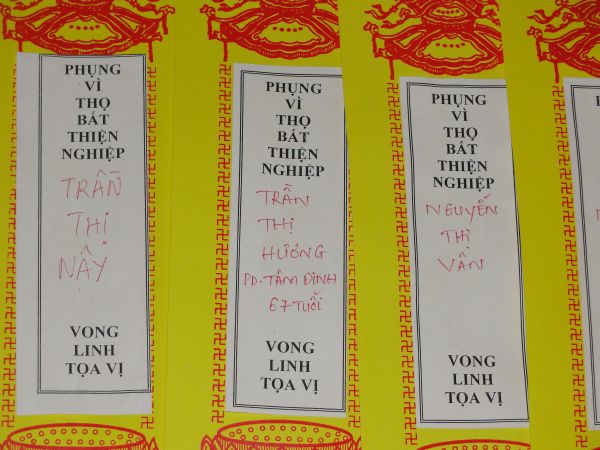 PHỤNG
VÌ
THỌ
BÁT
THIỆN
NGHIỆP
TRẦN
THỊ
NẬY
VONG
LINH
TỌA VỊ
PHỤNG
VÌ
THỌ
BÁT
THIỆN
NGHIỆP
TRẦN
THỊ
HƯƠNG
PD-TÂM ĐỊNH
67 TUỔI
VONG
LINH
TỌA VỊ
PHỤNG
VÌ
THỌ
BÁT
THIỆN
NGHIỆP
NGUYỄN
THỊ
VÂN
VONG
LINH
TỌA VỊ